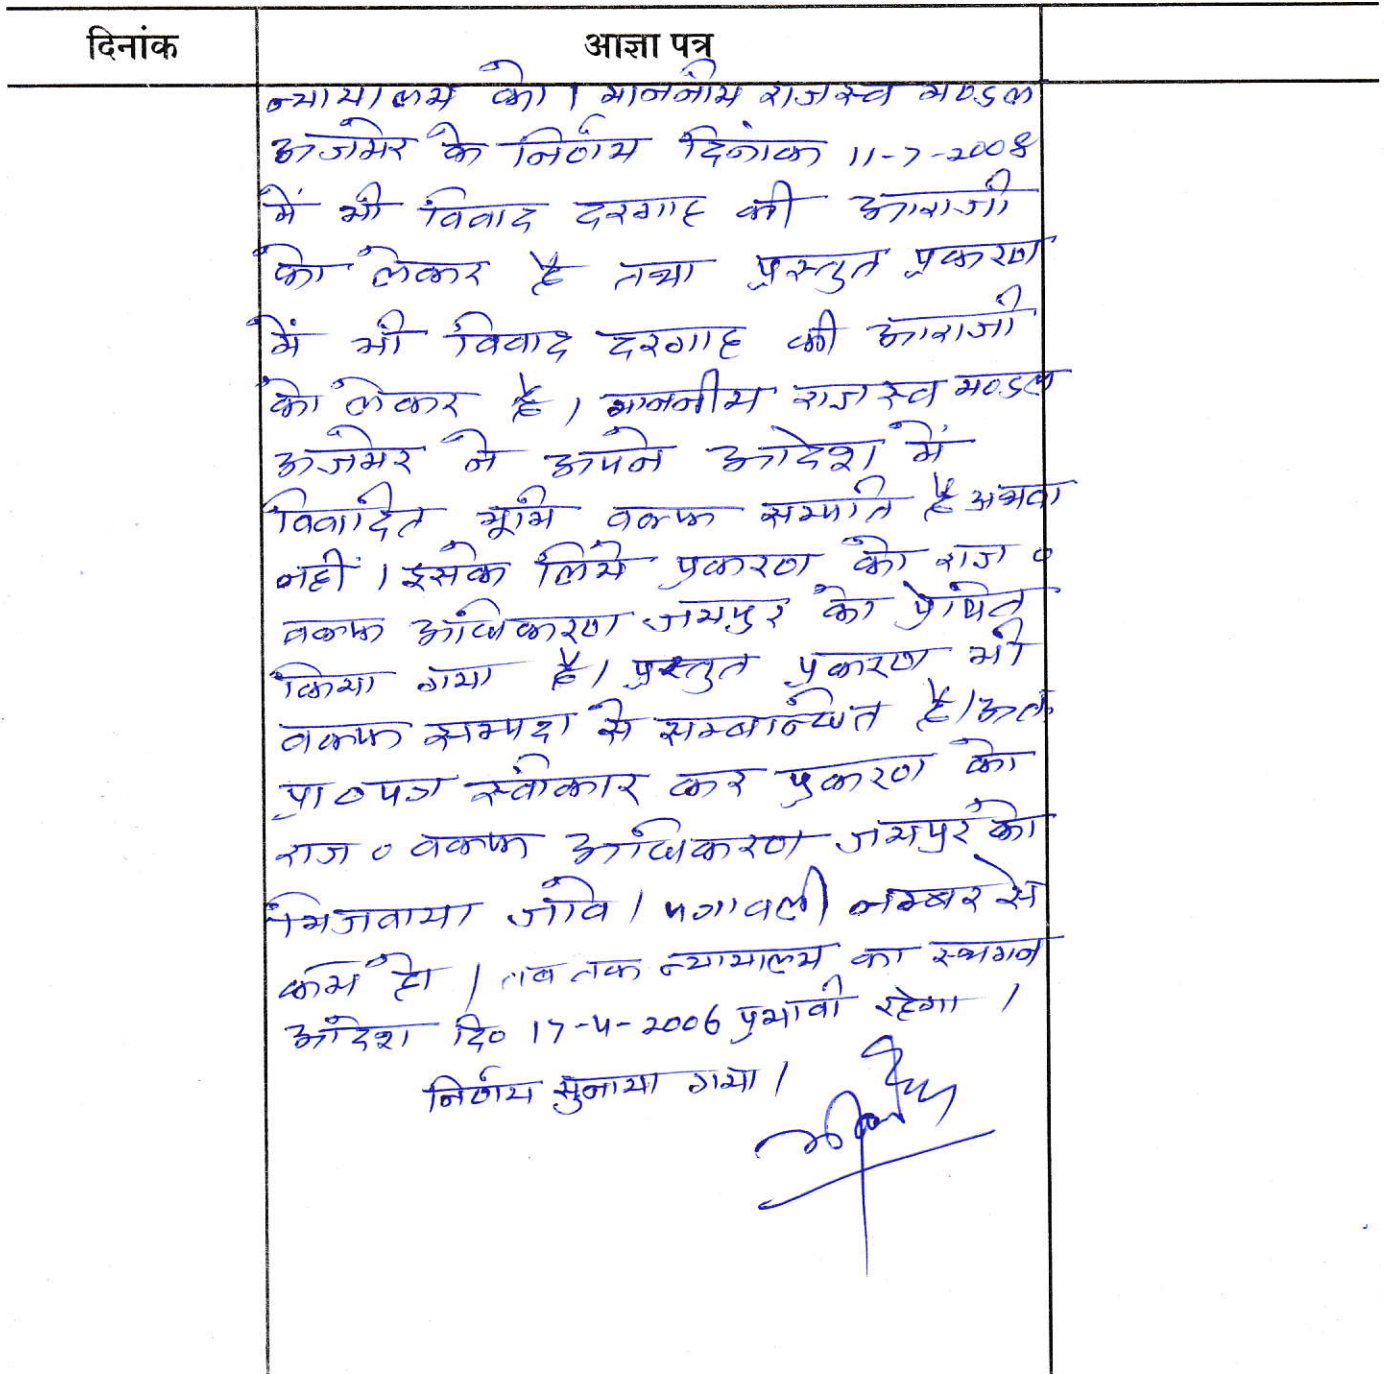 दिनांक आज्ञा पत्र
न्यायालय को। माननीय राजस्व मण्डल
अजमेर के निर्णय दिनांक 11-7-2008
में भी विवाद दरगाह की आराजी
को लेकर है तथा प्रस्तुत प्रकरण
में भी विवाद दरगाह की आराजी
को लेकर है। माननीय राजस्व मण्डल
अजमेर ने अपने आदेश में
विवादित भूमि वक्फ सम्पति है अथवा
नहीं। इसके लिये प्रकरण को राज०
वक्फ अधिकरण जयपुर को प्रेषित
किया गया है। प्रस्तुत प्रकरण भी
वक्फ सम्पदा से सम्बन्धित है। अतः
प्रा०पत्र स्वीकार कर प्रकरण को
राज० वक्फ अधिकरण जयपुर को
भिजवाया जावे। पत्रावली नम्बर से
कम हो। तब तक न्यायालय का स्थगन
आदेश दि० 17-4-2006 प्रभावी रहेगा।
निर्णय सुनाया गया।